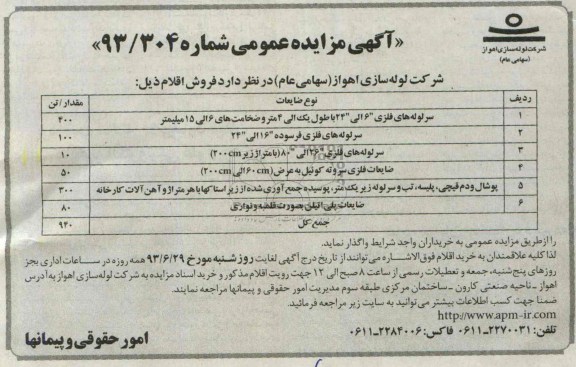 شرکت لوله سازی اهواز
(سهامی عام)
«آگهی مزایده عمومی شماره ۹۳/۳۰۴»
شرکت لوله سازی اهواز (سهامی عام) در نظر دارد فروش اقلام ذیل:
ردیف نوع ضایعات مقدار/تن
۱ سرلوله های فلزی "۶ الی "۲۴ با طول یک الی ۴ متر و ضخامت های ۶ الی ۱۵ میلیمتر ۴۰۰
۲ سرلوله های فلزی فرسوده "۱۶ الی "۲۴ ۱۰۰
۳ سرلوله های فلزی "۲۶ الی "۸۰ (با متراژ زیر ۲۰۰cm) ۱۰
۴ ضایعات فلزی سر و ته کوئیل به عرض (۶۰cm الی ۲۰۰cm) ۵۰
۵ پوشال و دم قیچی، پلیسه، تب و سر لوله زیر یک متر، پوسیده جمع آوری شده از زیر استاکها با هر متراژ و آهن آلات کارخانه ۳۰۰
۶ ضایعات پلی اتیلن بصورت قلمبه و نواری ۸۰
جمع کل ۹۴۰
را از طریق مزایده عمومی به خریداران واجد شرایط واگذار نماید.
لذا کلیه علاقمندان به خرید اقلام فوق الاشاره می توانند از تاریخ درج آگهی لغایت روز شنبه مورخ ۹۳/۶/۲۹ همه روزه در ساعات اداری بجز
روزهای پنج شنبه، جمعه و تعطیلات رسمی از ساعت ۸ صبح الی ۱۲ جهت رویت اقلام مذکور و خرید اسناد مزایده به شرکت لوله سازی اهواز به آدرس
اهواز - ناحیه صنعتی کارون - ساختمان مرکزی طبقه سوم مدیریت امور حقوقی و پیمانها مراجعه نمایند.
ضمنا جهت کسب اطلاعات بیشتر می توانید به سایت زیر مراجعه فرمائید.
http://www.apm-ir.com
تلفن: ۲۲۷۰۰۳۱-۰۶۱۱ فاکس: ۲۲۸۴۰۰۶-۰۶۱۱
امور حقوقی و پیمانها